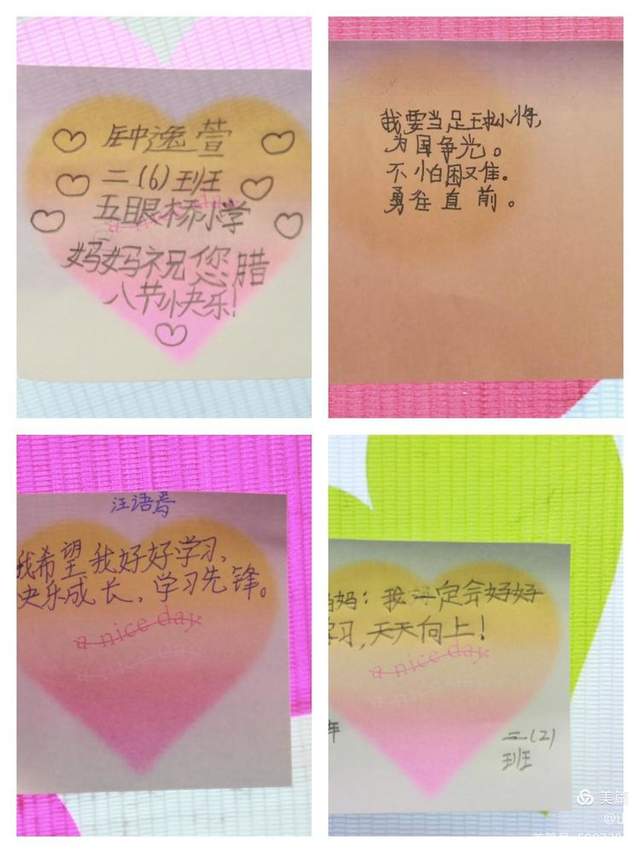 钟逸萱
二(6)班
五眼桥小学
妈妈祝您腊
八节快乐!
我要当足球小将,
为国争光。
不怕困难。
勇往直前。
汪语焉
我希望我好好学习,
快乐成长,学习先锋。
a nice day
妈:我一定会好好
学习,天天向上!
a nice day
年
二(2)
班
美篇